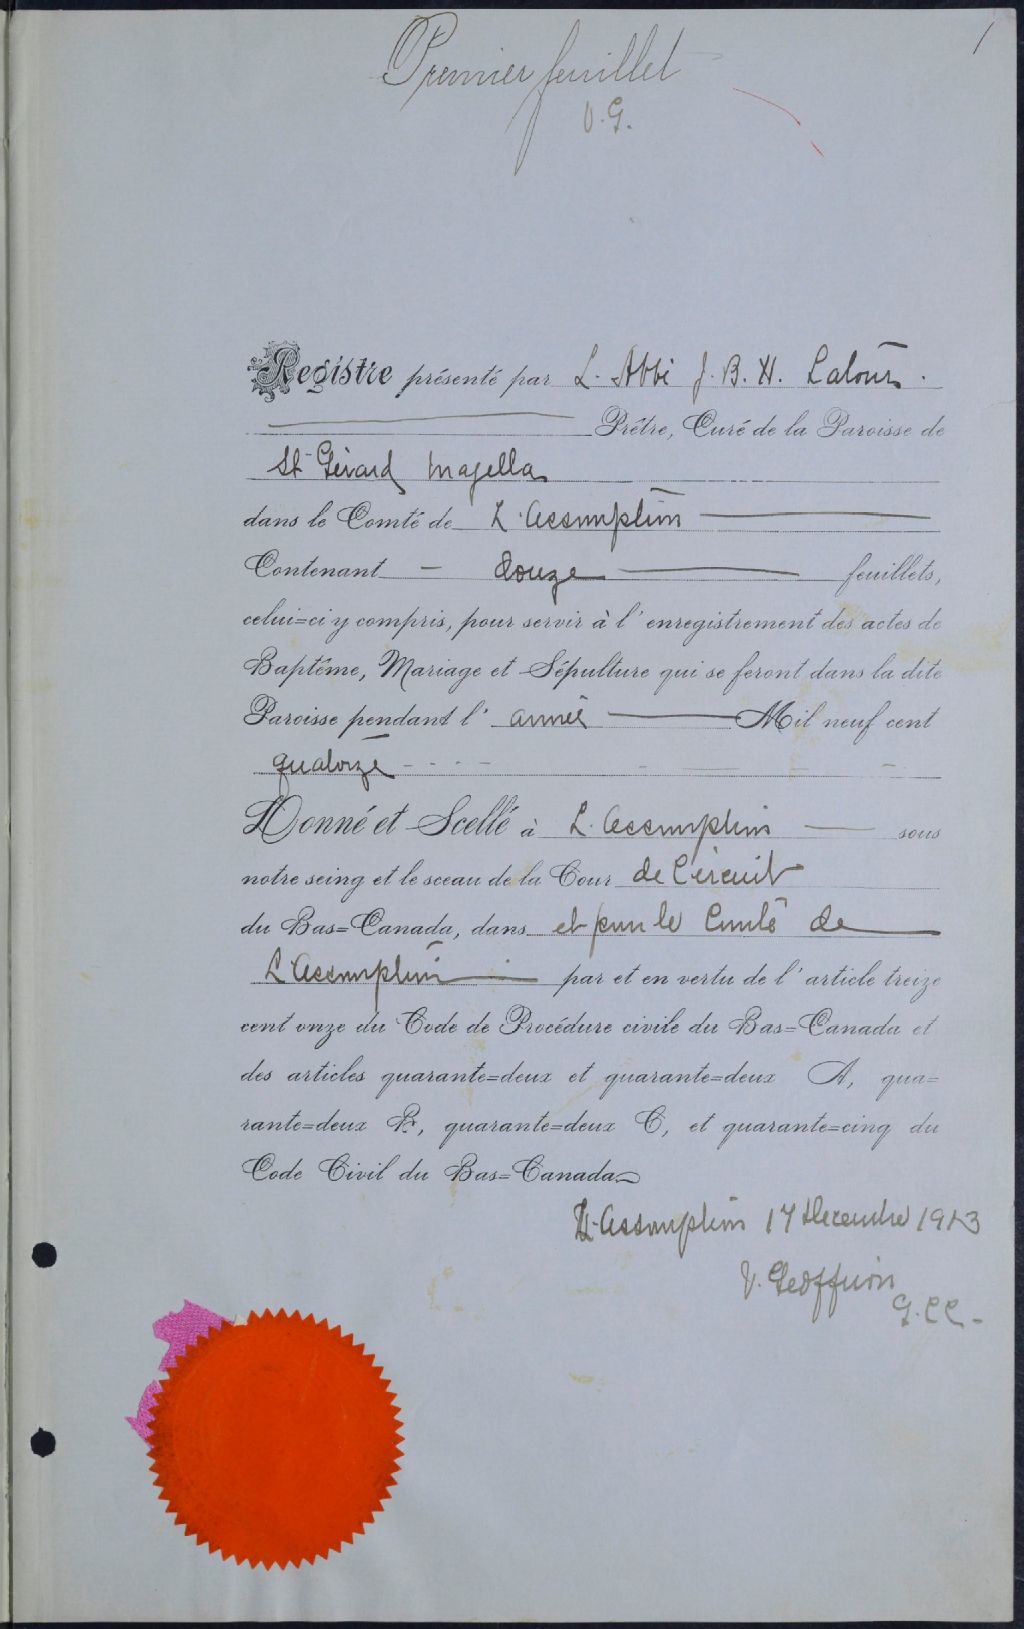 1
Premier feuillet
V. G.
Registre présenté par L. Abbé J. B. H. Latour.
Prêtre, Curé de la Paroisse de
St Gérard Magella
dans le Comté de L'Assomption
Contenant — douze — feuillets,
celui=ci y compris, pour servir à l'enregistrement des actes de
Baptême, Mariage et Sépulture qui se feront dans la dite
Paroisse pendant l'année — Mil neuf cent
quatorze
Donné et Scellé à L'Assomption — sous
notre seing et le sceau de la Cour de Circuit
du Bas=Canada, dans et pour le Comté de
L'Assomption — par et en vertu de l'article treize
cent onze du Code de Procédure civile du Bas=Canada et
des articles quarante=deux et quarante=deux A, qua=
rante=deux B, quarante=deux C, et quarante=cinq du
Code Civil du Bas=Canada
L'Assomption 17 Décembre 1913
V. Geoffrion
G. C C.